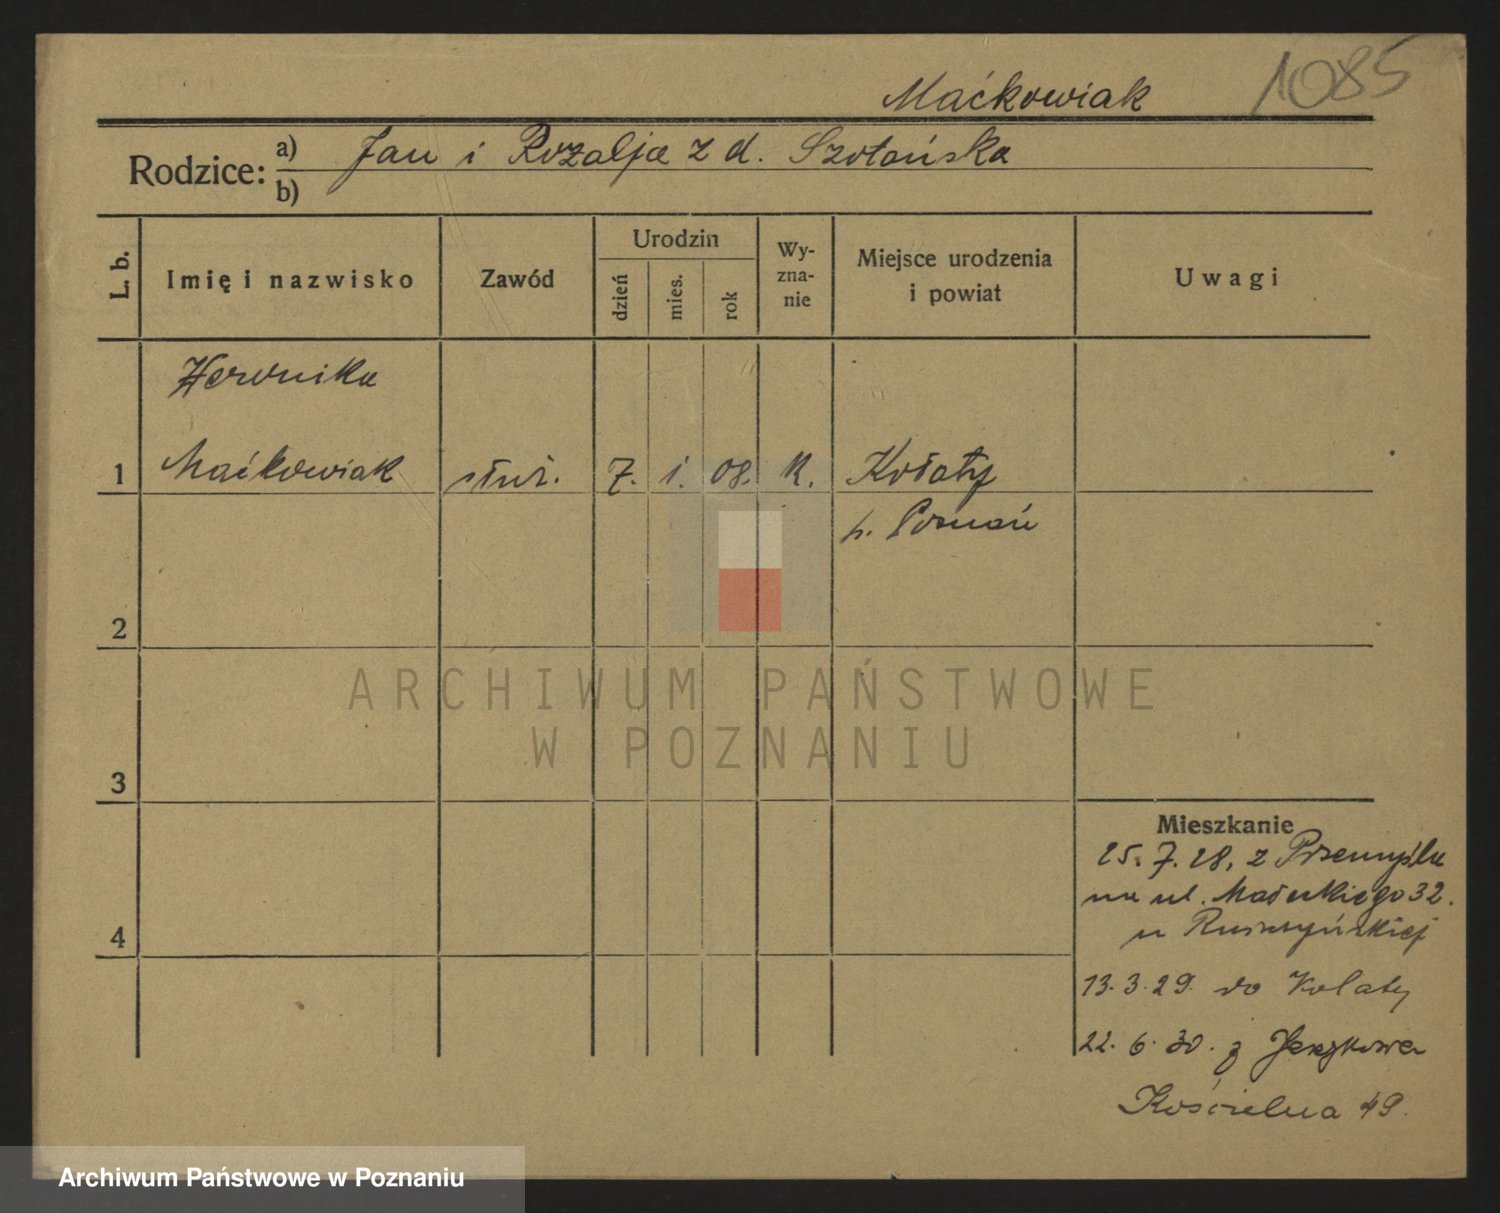 Maćkowiak 1085
Rodzice: a) Jan i Rozalja z d. Szołańska
b)
L. b. Imię i nazwisko Zawód Urodzin dzień mies. rok Wy-zna-nie Miejsce urodzenia i powiat Uwagi
Weronika
1 Maćkowiak służ. 7. 1. 08. K. Kołaty
p. Poznań
2
ARCHIWUM PAŃSTWOWE
W POZNANIU
3
Mieszkanie
25. 7. 28. z Przemyśla
na ul. Małeckiego 32.
u Ruszczyńskiej
4
13. 3. 29. do Kolaty
22. 6. 30. z Jerzykowa
Kościelna 49.
Archiwum Państwowe w Poznaniu